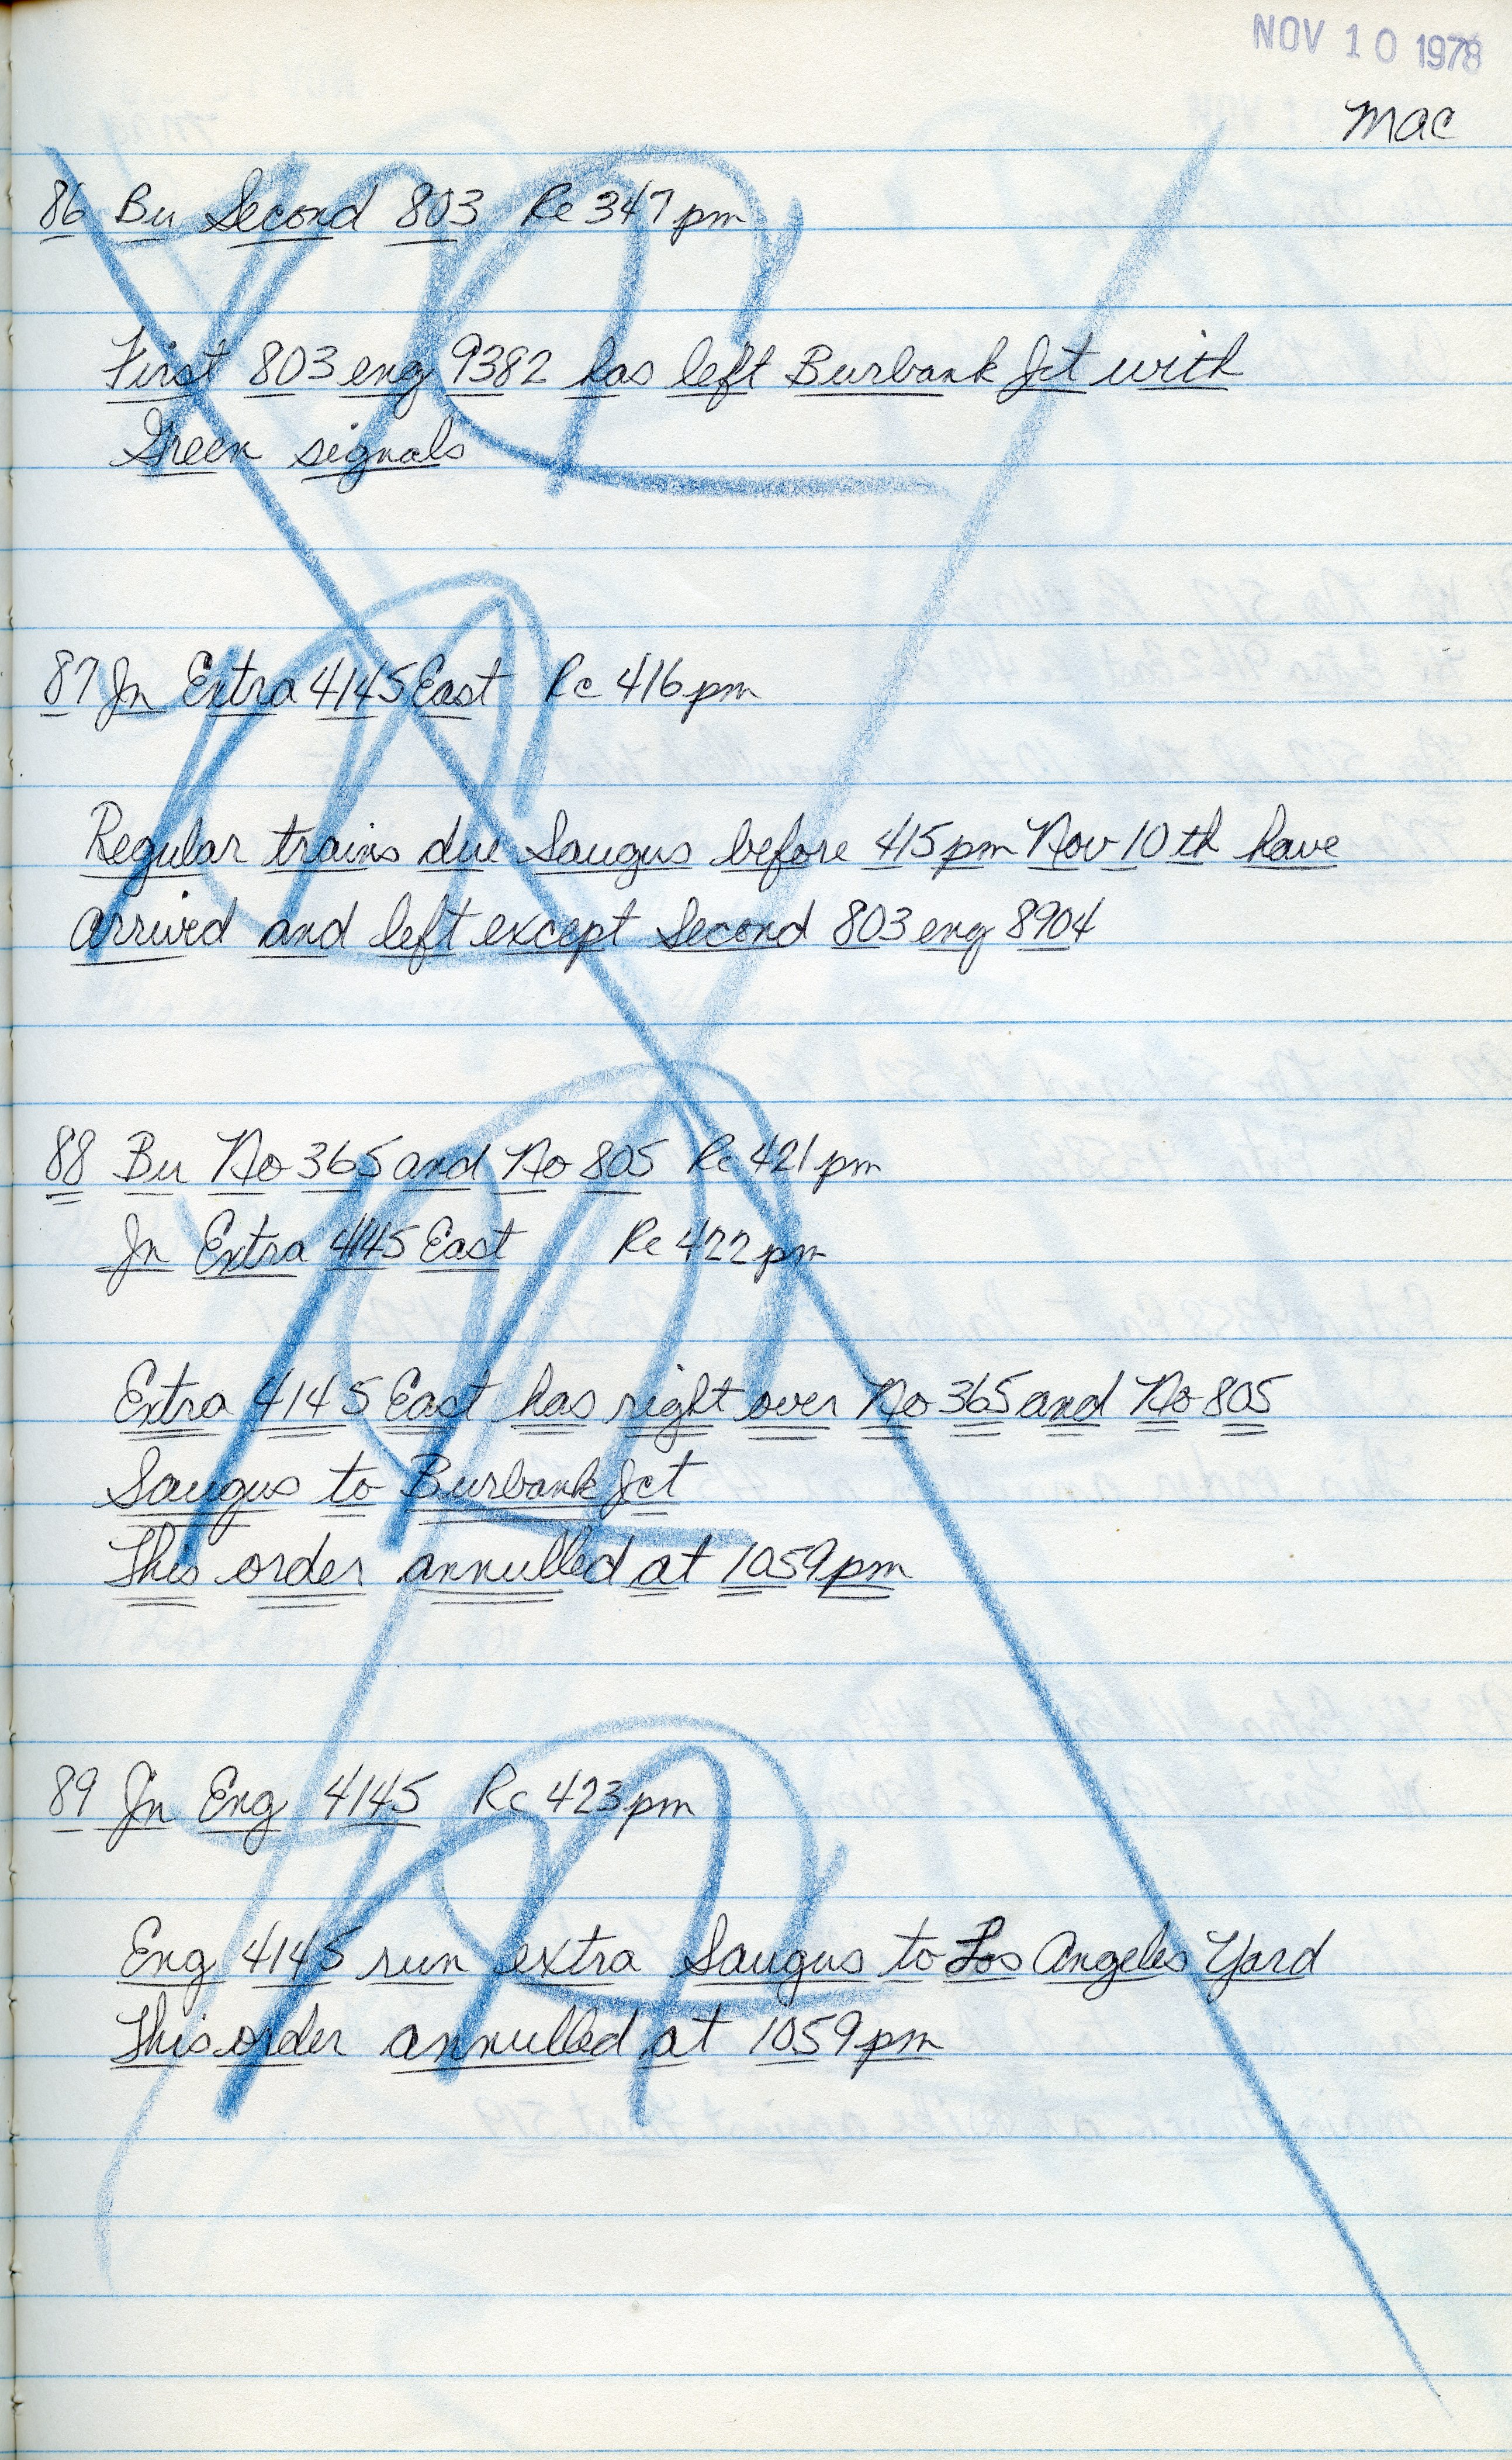 NOV 10 1978
mac
86 Bu Second 803 Rc 347 pm
First 803 eng 9382 has left Burbank Jct with
Green signals
87 Jn Extra 4145 East Rc 416 pm
Regular trains due Saugus before 415 pm Nov 10 th have
arrived and left except Second 803 eng 8904
88 Bu No 365 and No 805 Rc 421 pm
Jn Extra 4145 East Rc 422 pm
Extra 4145 East has right over No 365 and No 805
Saugus to Burbank Jct
This order annulled at 1059 pm
89 Jn Eng 4145 Rc 423 pm
Eng 4145 run extra Saugus to Los Angeles Yard
This order annulled at 1059 pm